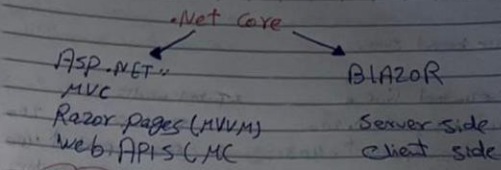 .Net Core
ASP.NET..
MVC
Razor pages (MVVM)
Web APIS (MC
BLAZOR
Server side
Client side